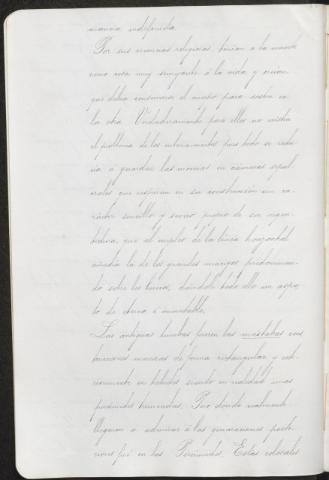 manera indefinida.
Por sus creencias religiosas, tenían a la muerte
como cosa muy semejante á la vida, y creían
que debia conservarse el cuerpo para existir en
la otra. Verdaderamente para ellos no existia
el problema de los enterramientos pues todo se redu
cia á guardar las momias en cámaras sepul
crales que requieren en su construcción un ca-
rácter sencillo y severo propio de su
que al empleo de la línea horizontal
añadia la de los grandes macizos predominan
do sobre los huecos, dándole todo ello un aspec
to de eterno é inmutable.
Las antiguas tumbas fueron las mastabas cons
trucciones macizas de forma rectangular y
en taludes siendo en realidad unas
pirámides truncadas. Pero donde realmente
llegaron a admirar á las generaciones poste
riores fué en las Pirámides. Estas colosales